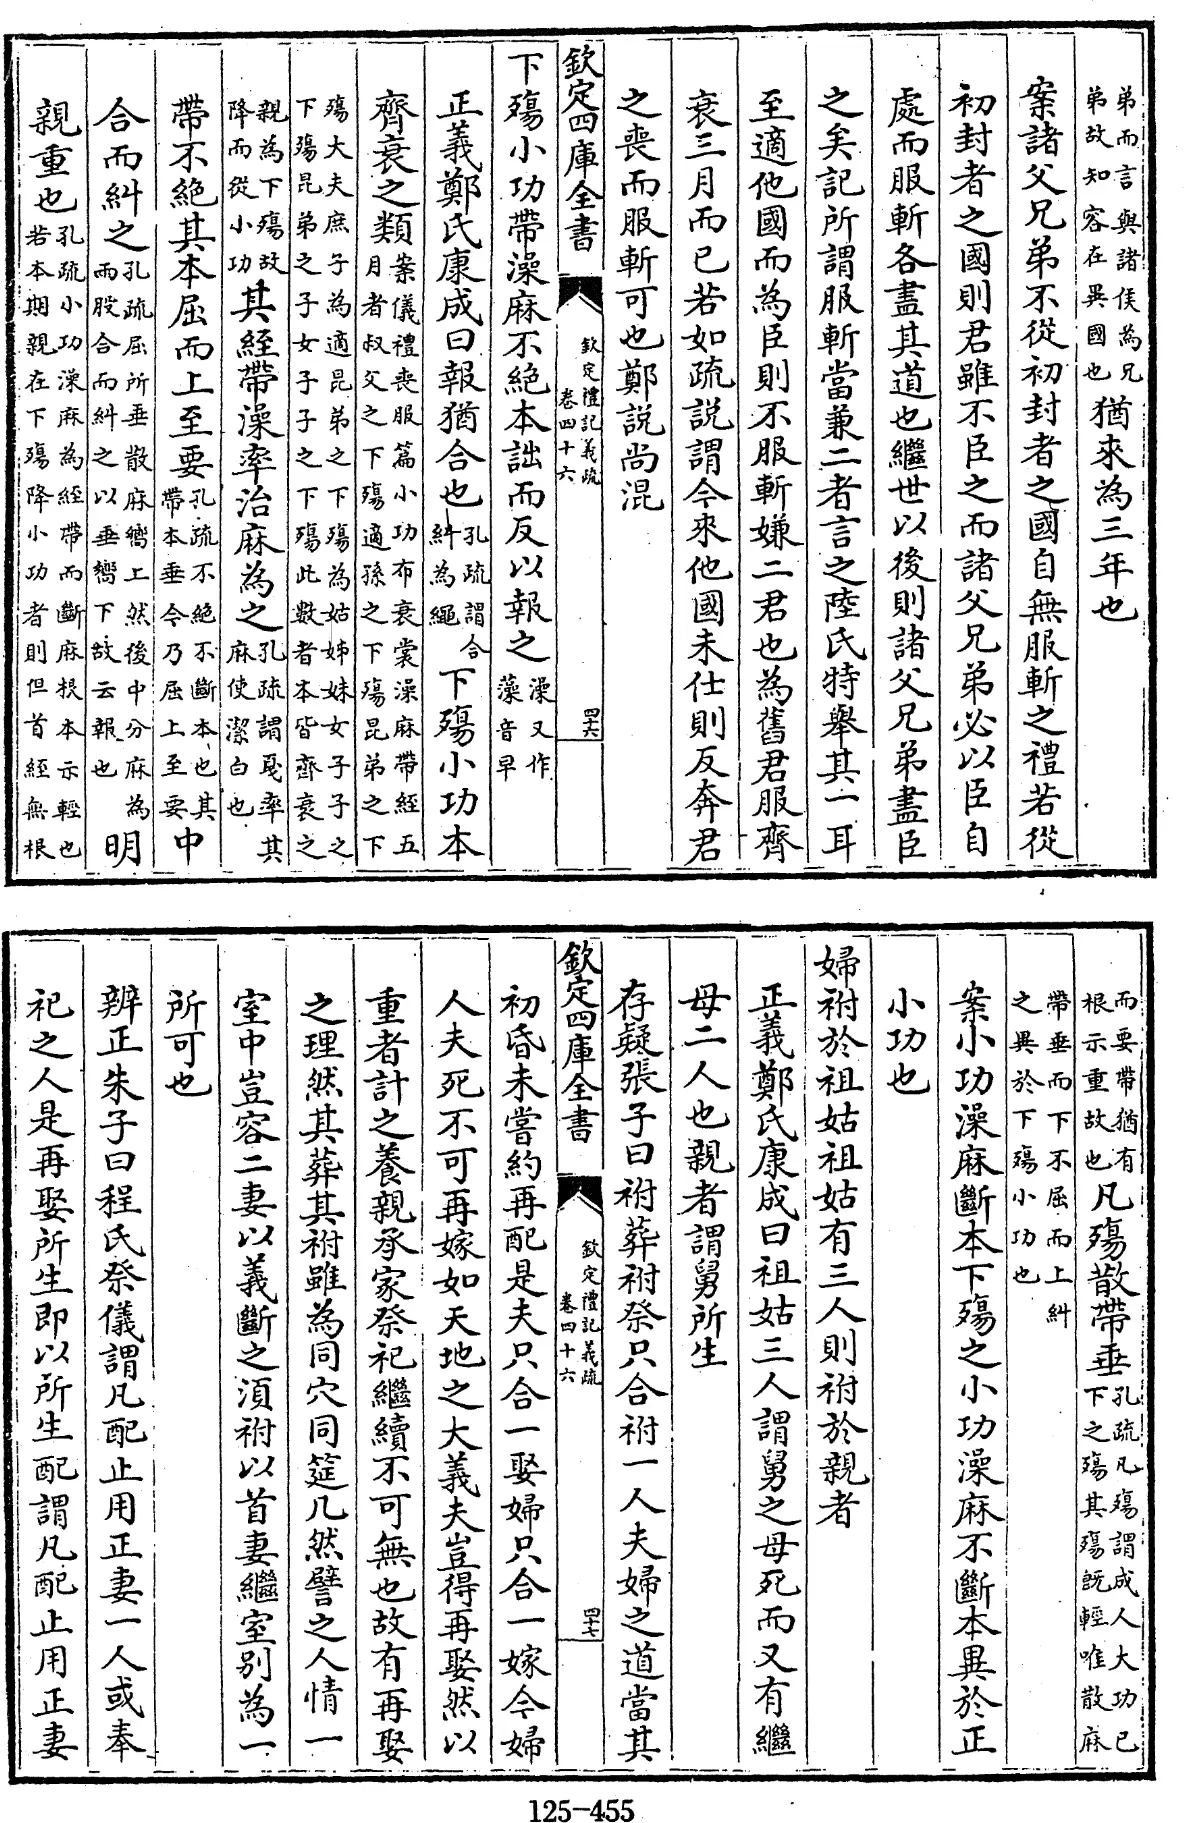 弟而言與諸侯為兄
弟故知容在異國也猶來為三年也
案諸父兄弟不從初封者之國自無服斬之禮若從
初封者之國則君雖不臣之而諸父兄弟必以臣自
處而服斬各盡其道也繼世以後則諸父兄弟盡臣
之矣記所謂服斬當兼二者言之陸氏特舉其一耳
至適他國而為臣則不服斬嫌二君也為舊君服齊
衰三月而已若如疏說謂今來他國未仕則反奔君
之喪而服斬可也鄭說尚混
欽定四庫全書
欽定禮記義疏
卷四十六
四十六
下殤小功帶澡麻不絕本詘而反以報之澡又作
藻音早
正義鄭氏康成曰報猶合也孔疏謂合
糾為繩下殤小功本
齊衰之類案儀禮喪服篇小功布衰裳澡麻帶絰五
月者叔父之下殤適孫之下殤昆弟之下
殤大夫庶子為適昆弟之下殤為姑姊妹女子子之
下殤昆弟之子女子子之下殤此數者本皆齊衰之
親為下殤故
降而從小功其絰帶澡率治麻為之孔疏謂戛率其
麻使潔白也
帶不絕其本屈而上至要孔疏不絕不斷本也其
帶本垂今乃屈上至要中
合而糾之孔疏屈所垂散麻嚮上然後中分麻為
兩股合而糾之以垂嚮下故云報也明
親重也孔疏小功澡麻為絰帶而斷麻根本示輕也
若本期親在下殤降小功者則但首絰無根
而要帶猶有
根示重故也凡殤散帶垂孔疏凡殤謂成人大功已
下之殤其殤旣輕唯散麻
帶垂而下不屈而上糾
之異於下殤小功也
案小功澡麻斷本下殤之小功澡麻不斷本異於正
小功也
婦祔於祖姑祖姑有三人則祔於親者
正義鄭氏康成曰祖姑三人謂舅之母死而又有繼
母二人也親者謂舅所生
存疑張子曰祔葬祔祭只合祔一人夫婦之道當其
欽定四庫全書
欽定禮記義疏
卷四十六
四十七
初昏未嘗約再配是夫只合一娶婦只合一嫁今婦
人夫死不可再嫁如天地之大義夫豈得再娶然以
重者計之養親承家祭祀繼續不可無也故有再娶
之理然其葬其祔雖為同穴同筵几然譬之人情一
室中豈容二妻以義斷之須祔以首妻繼室別為一
所可也
辨正朱子曰程氏祭儀謂凡配止用正妻一人或奉
祀之人是再娶所生即以所生配謂凡配止用正妻
125-455